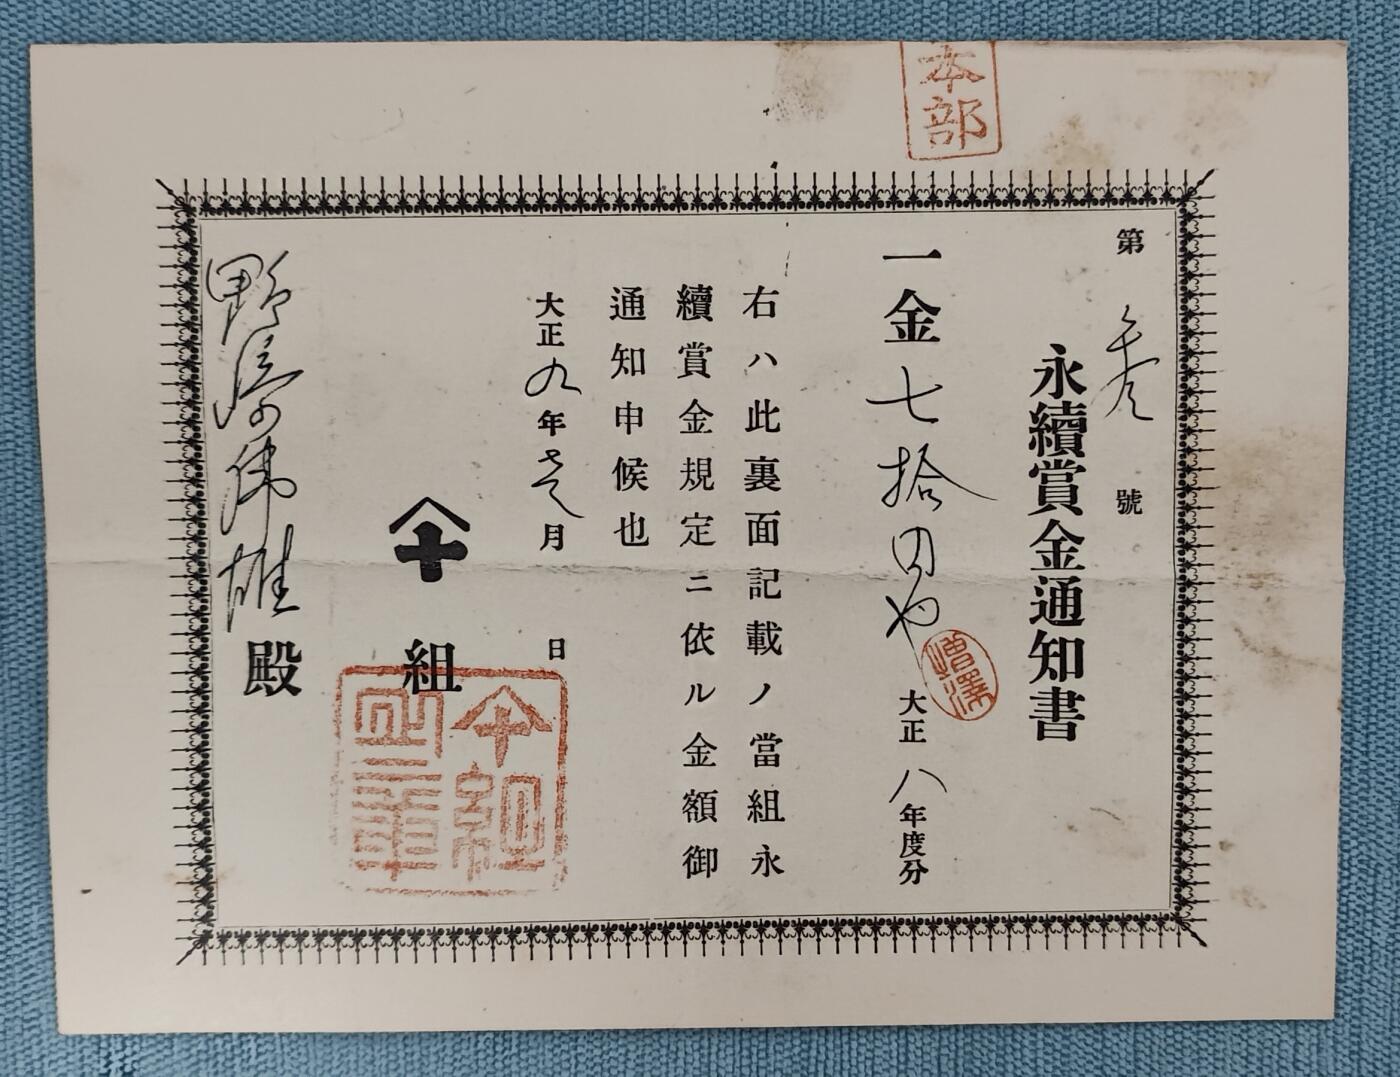 本部
第 号
永續賞金通知書
一金七拾円也 大正八年度分
増澤
右ハ此裏面記載ノ當組永
續賞金規定ニ依ル金額御
通知申候也
大正九年 月 日
組
野澤偉雄殿